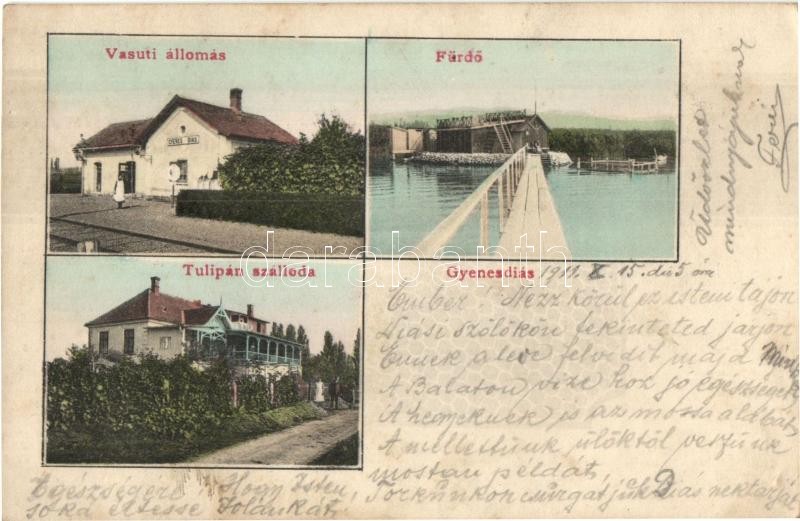 Vasuti állomás
Fürdő
Tulipán szálloda
Gyenesdiás 1911. X. 15. du 5 óra
Ember! Nézz körül ez istem tájon
Diási szőlőkön tekinteted járjon
Ennek a leve felvidít majd
A Balaton vize hoz jó egészséget
A hegyeknek is az mossa alábat,
A mellettünk ülőktől veszünk
mostan példát,
Torkunkon csurgatjuk Diás nektárját
Egészségére Hogy Isten
soká éltesse Jolánkát,
Üdvözlet
mindnyájuknak
Feri
darabanth